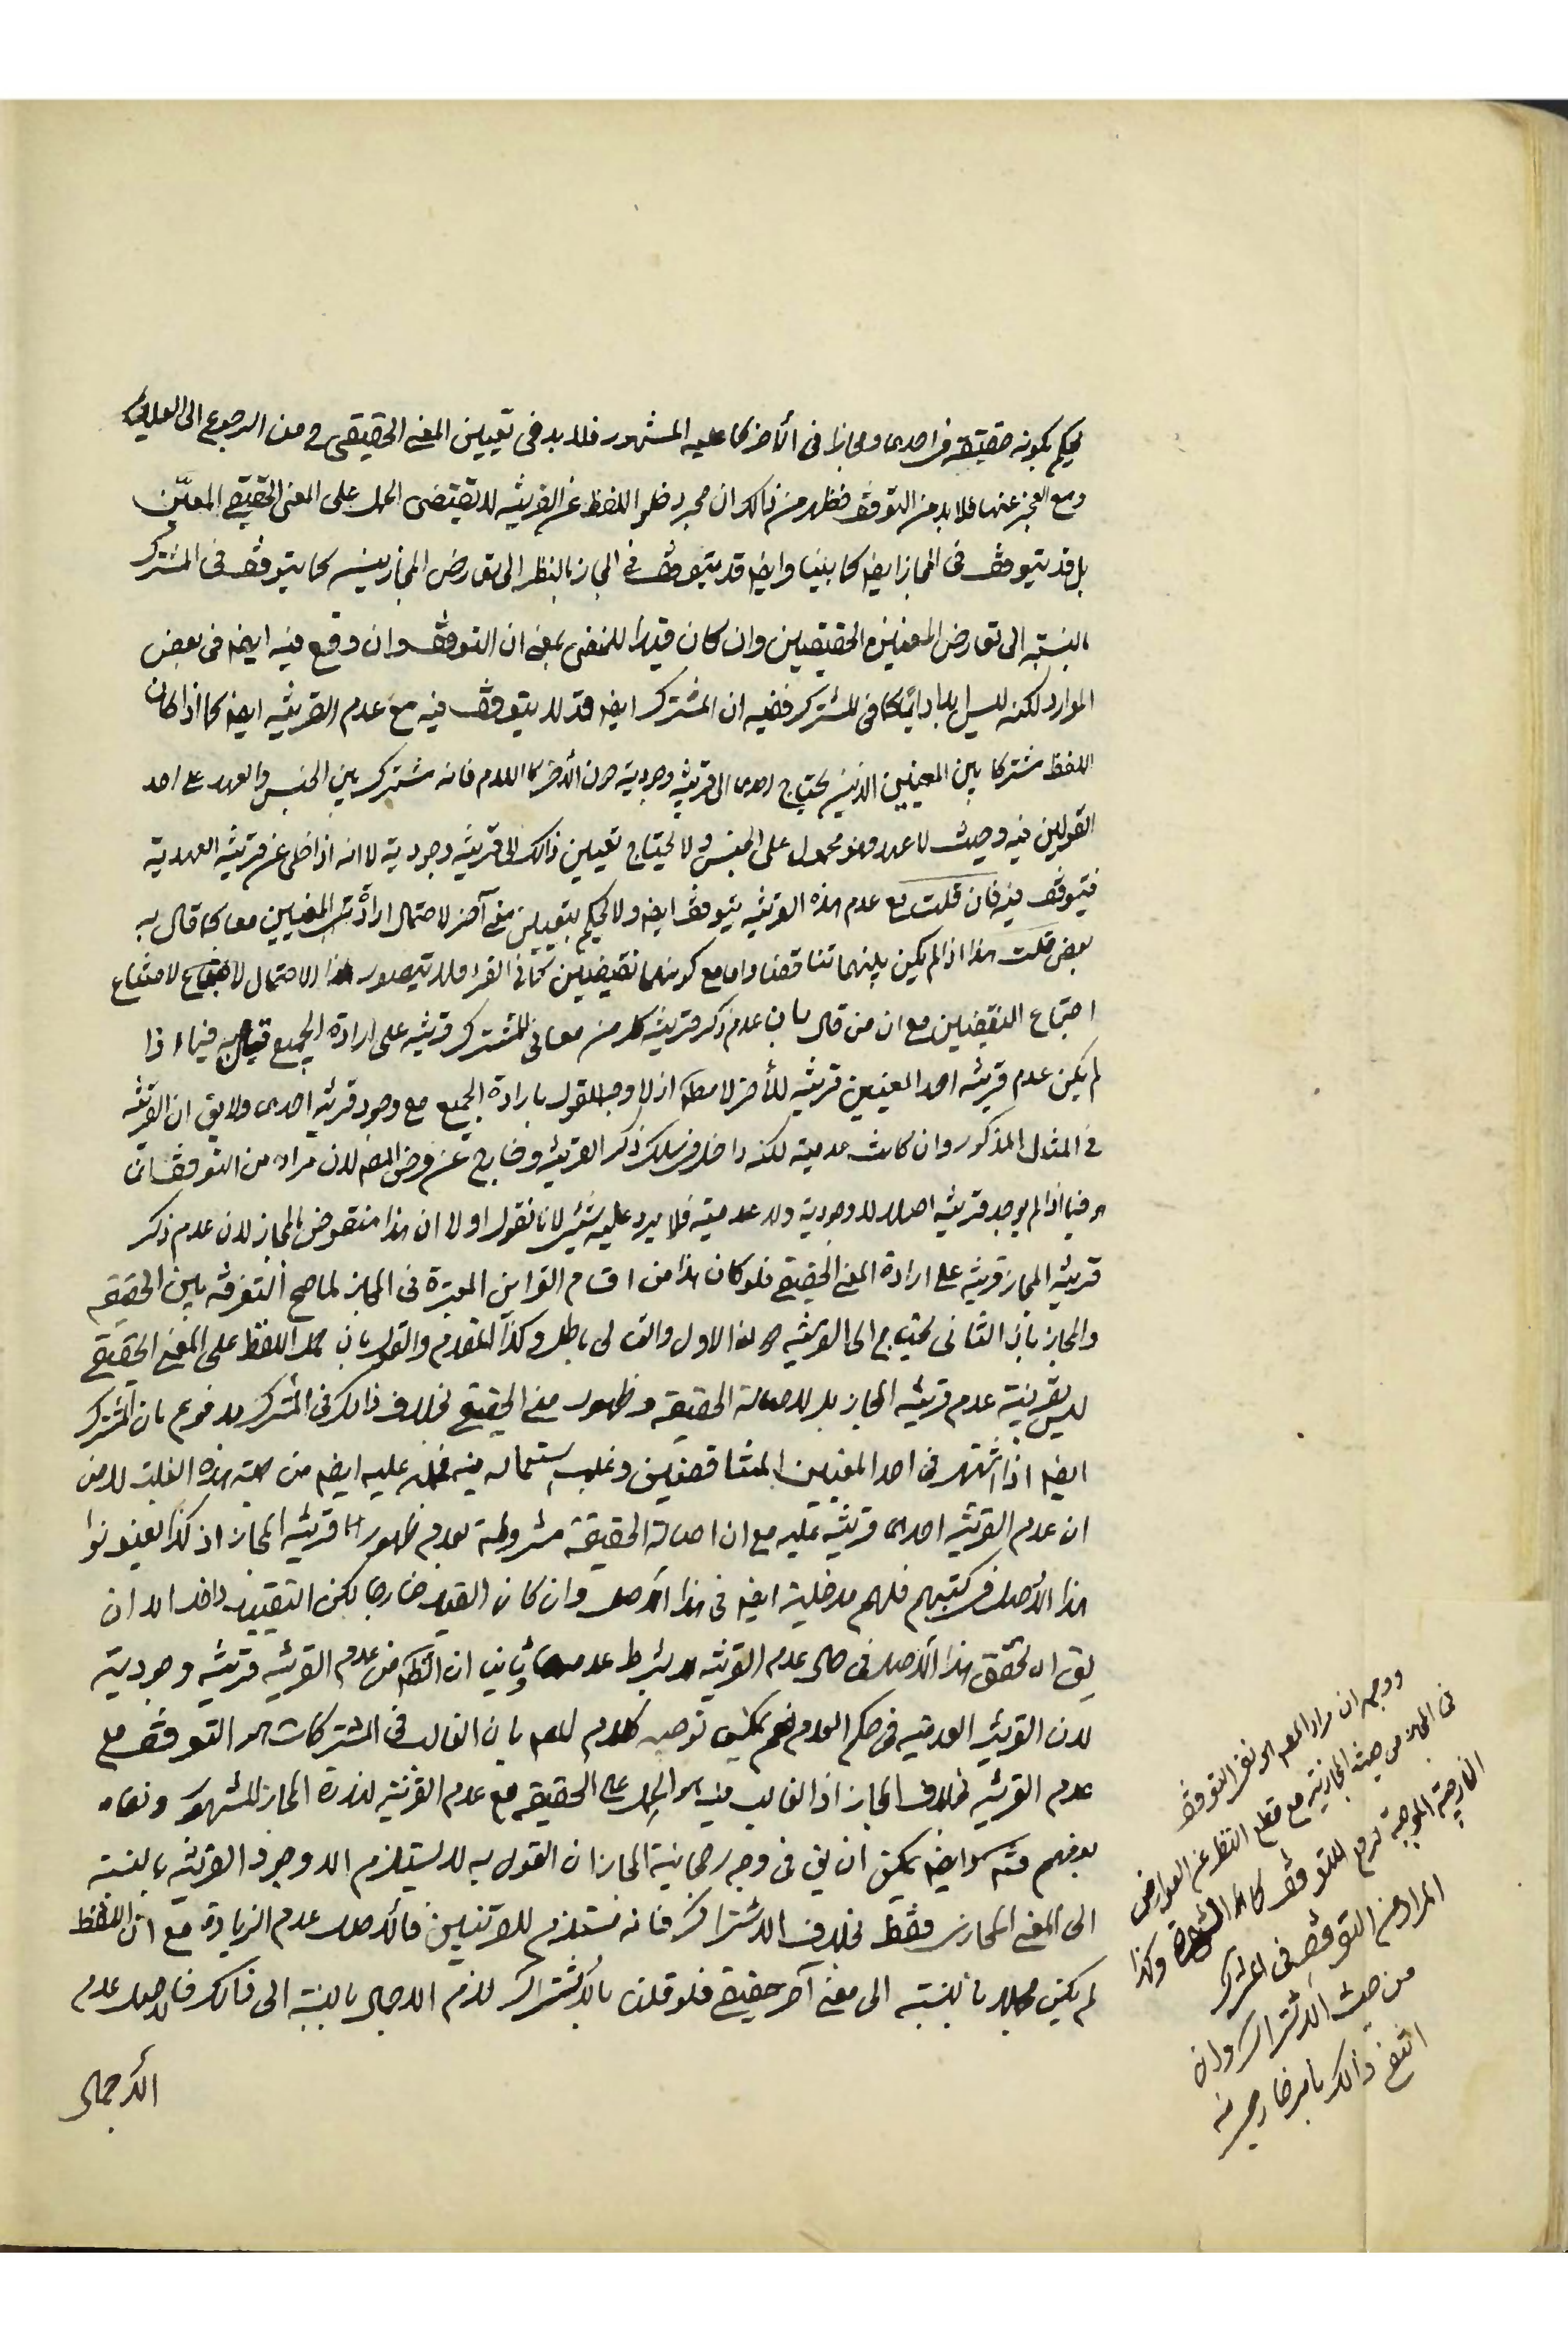 يحكم بكونه حقيقة في احدى ومجازا في الآخر كما عليه المشهور فلا بد في تعيين المعنى الحقيقي من الرجوع الى العلائم
ومع العجز عنها فلا بد من التوقف فظهر من ذلك ان مجرد خلو اللفظ عن القرينه لا يقتضى الحمل على المعنى الحقيقي المعيّن
بل قد يتوقف في المجاز ايضا كما بينا وايضا قد يتوقف في المجاز بالنظر الى تعارض المجازين كما يتوقف في المشترك
بالنسبة الى تعارض المعنيين الحقيقيين وان كان قيدا للمنفى بمعنى ان التوقف وان وقع فيه ايضا في بعض
الموارد لكنه ليس دائما كما في المشترك ففيه ان المشترك ايضا قد لا يتوقف فيه مع عدم القرينه ايضا كما اذا كان
اللفظ مشتركا بين المعنيين الذين يحتاج احدى الى قرينه وجودية دون الآخر كاللام فانه مشترك بين الجنس والعهد على احد
القولين فيه وحيث لا عهد فهو محمول على الجنس ولا يحتاج تعيين ذلك الى قرينه وجودية لا انه اذا خلى عن قرينه العهدية
فيتوقف فيه فان قلت مع عدم هذه القرينه يتوقف ايضا ولا يحكم بتعيين معنى آخر لاحتمال ارادة المعنيين معا كما قال به
بعض قلت هذا اذا لم يكن بينهما تناقضا واما مع كونهما نقيضين كما في القرء فلا يتصور هذا الاحتمال لامتناع
اجتماع النقيضين مع ان من قال بان عدم ذكر قرينة كل من معانى المشترك قرينه على ارادة الجميع فيما اذا
لم يكن عدم قرينه احد المعنيين قرينه للآخر لا مطلقا اذ لا وجه للقول بارادة الجميع مع وجود قرينه احدى ولا يق ان القرينه
في المثال المذكور وان كانت عدمية لكنه داخل في سلك ذكر القرينه وخارج عن فرض المص لان مراده من التوقف
هو فيما اذا لم يوجد قرينه اصلا لا وجودية ولا عدمية فلا يرد عليه شيئ لانا نقول اولا ان هذا منقوض بالمجاز لان عدم ذكر
قرينه المجاز قرينه على ارادة المعنى الحقيقي فلو كان هذا من اقسام القراين المعتبرة في المجاز لما صح التفرقه بين الحقيقه
والمجاز بان الثانى يحتاج الى القرينه دون الاول والتالى باطل وكذا المقدم والقول بان حمل اللفظ على المعنى الحقيقي
ليس بقرينة عدم قرينه المجاز بل لاصالة الحقيقه وظهور معنى الحقيقي بخلاف ذلك في المشترك مدفوع بان المشترك
ايضا اذا اشتهر في احد المعنيين المتناقضين وغلب استعماله فيه عليه ايضا من جهة هذه الغلبة لا من
ان عدم القرينه احدى قرينه عليه مع ان اصالة الحقيقة مشروطة بعدم ظهور قرينه المجاز اذ كذا يعنونوا
هذا الاصل في كتبهم فلهم مدخلية ايضا في هذا الاصل وان كان القيد خارجا لكن التقييد داخل الا ان
يق ان تحقق هذا الاصل في حال عدم القرينه لا بشرط عدمها وثانيا ان من عدم القرينه قرينه وجودية
لان القرينه العدميه في حكم العدم نعم يمكن توجيه كلام المص بان الغالب في المشتركات هو التوقف مع
عدم القرينه بخلاف المجاز اذ الغالب فيه هو الحمل على الحقيقه مع عدم القرينه لندرة المجاز المشهور
وايضا يمكن ان يق في وجه رجحانية المجاز ان القول به لا يستلزم الا وجود القرينه بالنسبة
الى المعنى المجازى فقط بخلاف الاشتراك فانه مستلزم للقرينتين فالاصل عدم الزيادة مع ان اللفظ
لم يكن مجملا بالنسبة الى معنى آخر حقيقي فلو قلنا بالاشتراك لزم الاجمال بالنسبة الى ذلك فالاصل عدم
الاجمال
ووجهه ان مراد المص هو نفى التوقف
في المجاز من حيث المجازية مع قطع النظر عن العوارض
الخارجية الموجبة للتوقف كالشهرة وكذا
المراد من التوقف في المشترك
من حيث الاشتراك وان
انتفى ذلك بامر خارجى منه